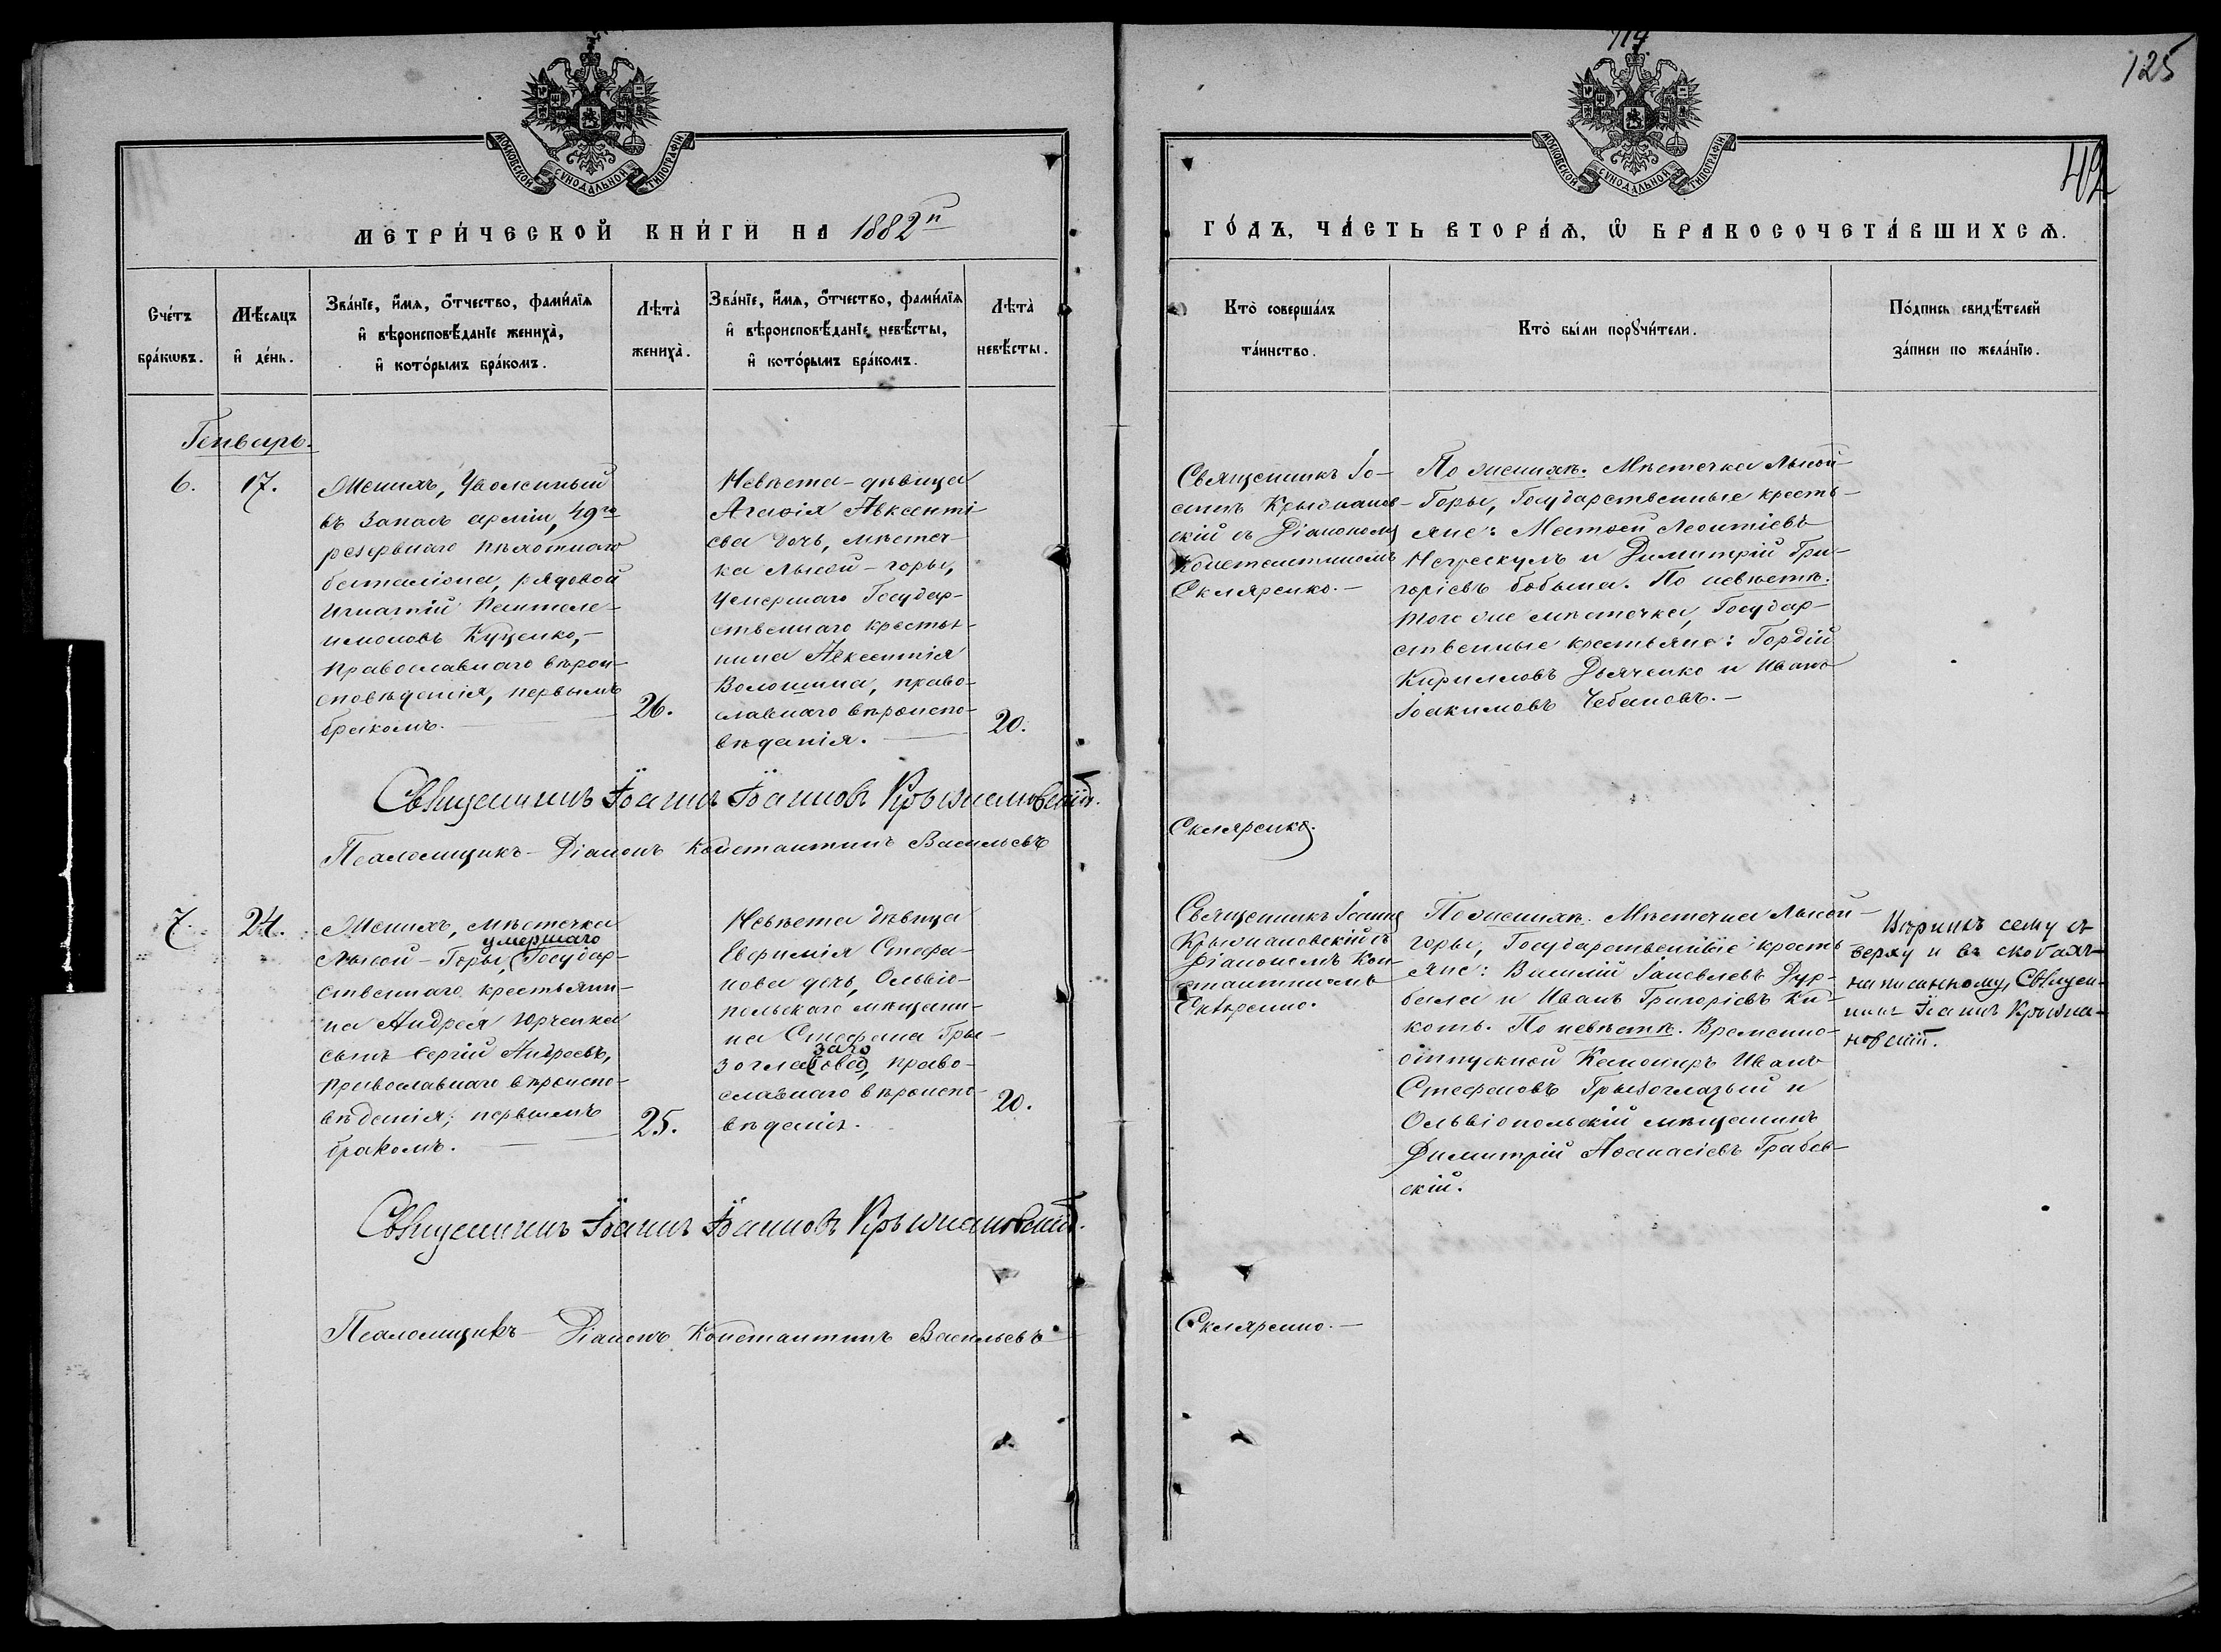 114.
125
42
МОСКОВСКОЙ СѴНОДАЛЬНОЙ ТИПОГРАФІИ
МОСКОВСКОЙ СѴНОДАЛЬНОЙ ТИПОГРАФІИ
МЕТРИ́ЧЕСКОЙ КНИ́ГИ НА 1882й
ГО́ДЪ, ЧА́СТЬ ВТОРА́Ѧ, Ѿ БРАКОСОЧЕТА́ВШИХСѦ.
Сче́тъ бра́кѡвъ.
Мѣ́сѧцъ и҆ де́нь.
Зва́нїе, и҆́мѧ, ѻ҆́тчество, фами́лїѧ
и҆ вѣроисповѣ́данїе женихà,
и҆ кото́рымъ бра́комъ.
Лѣтà
женихà.
Зва́нїе, и҆́мѧ, ѻ҆́тчество, фами́лїѧ
и҆ вѣроисповѣ́данїе невѣ́сты,
и҆ кото́рымъ бра́комъ.
Лѣтà
невѣ́сты.
Ктò соверша́лъ
та́инство.
Ктò бы́ли порꙋчи́тели.
По́дпись свидѣ́телей
за́писи по жела́нїю.
Генварь.
6.
17.
Женихъ, Уволенный
въ запасъ арміи, 49го
резервнаго пѣхотнаго
баталіона, рядовой
Игнатій Пантеле-
имоновъ Куценко,-
Православнаго вѣрои-
сповѣданія, первымъ
бракомъ.
26.
Невѣста-дѣвица
Агафія Авксенті
ева дочь, мѣстеч-
ка Лысой-горы,
Умершаго Государ-
ственнаго крестья-
нина Авксентія
Волошина, право-
славнаго вѣроиспо-
вѣданія.
20.
Священникъ Іо-
аннъ Крыжанов-
скій съ Діакономъ
Константиномъ
Скляренко.-
По женихѣ. Мѣстечка Лысой-
Горы, Государственные кресть-
яне: Матѳей Леонтіевъ
Негрескулъ и Димитрій Гри-
горіевъ Бобына. По невѣстѣ.
Того же мѣстечка, Государ-
ственные крестьяне: Гордій
Кирилловъ Дьяченко и Иванъ
Іоакимовъ Чебановъ.-
Священникъ Іоаннъ Іоанновъ Крыжановскій.
Псаломщикъ-Діаконъ Константинъ Васильевъ
Скляренко.
7.
24.
Женихъ, мѣстечка
умершаго
Лысой-Горы, (Государ-
ственнаго крестьяни-
на Андрея Юрченка
сынъ Сергій Андреевъ,
Православнаго вѣроиспо-
вѣданія, первымъ
бракомъ.
25.
Невѣста дѣвица
Евфимія Стефа-
нова дочь, Ольвіо-
польскаго мѣщани-
на Стефана Гры-
заго
зогла(ова), право-
славнаго вѣроиспо-
вѣданія.
20.
Священникъ Іоаннъ
Крыжановскій съ
Діакономъ Кон-
стантиномъ
Скляренко.
По женихѣ. Мѣстечка Лысой-
горы, Государственные кресть
яне: Василій Іаковлевъ Дур-
бала и Иванъ Григоріевъ Ки-
коть. По невѣстѣ. Временно-
отпускной Канониръ Иванъ
Стефановъ Грызоглазый и
Ольвіопольскій мѣщанинъ
Димитрій Аѳанасіевъ Грабов-
скій.
Вѣрить сему съ
верху и въ скобахъ
написанному, Священ-
никъ Іоаннъ Крыжа-
новскій.
Священникъ Іоаннъ Іоанновъ Крыжановскій.
Псаломщикъ-Діаконъ Константинъ Васильевъ
Скляренко.-